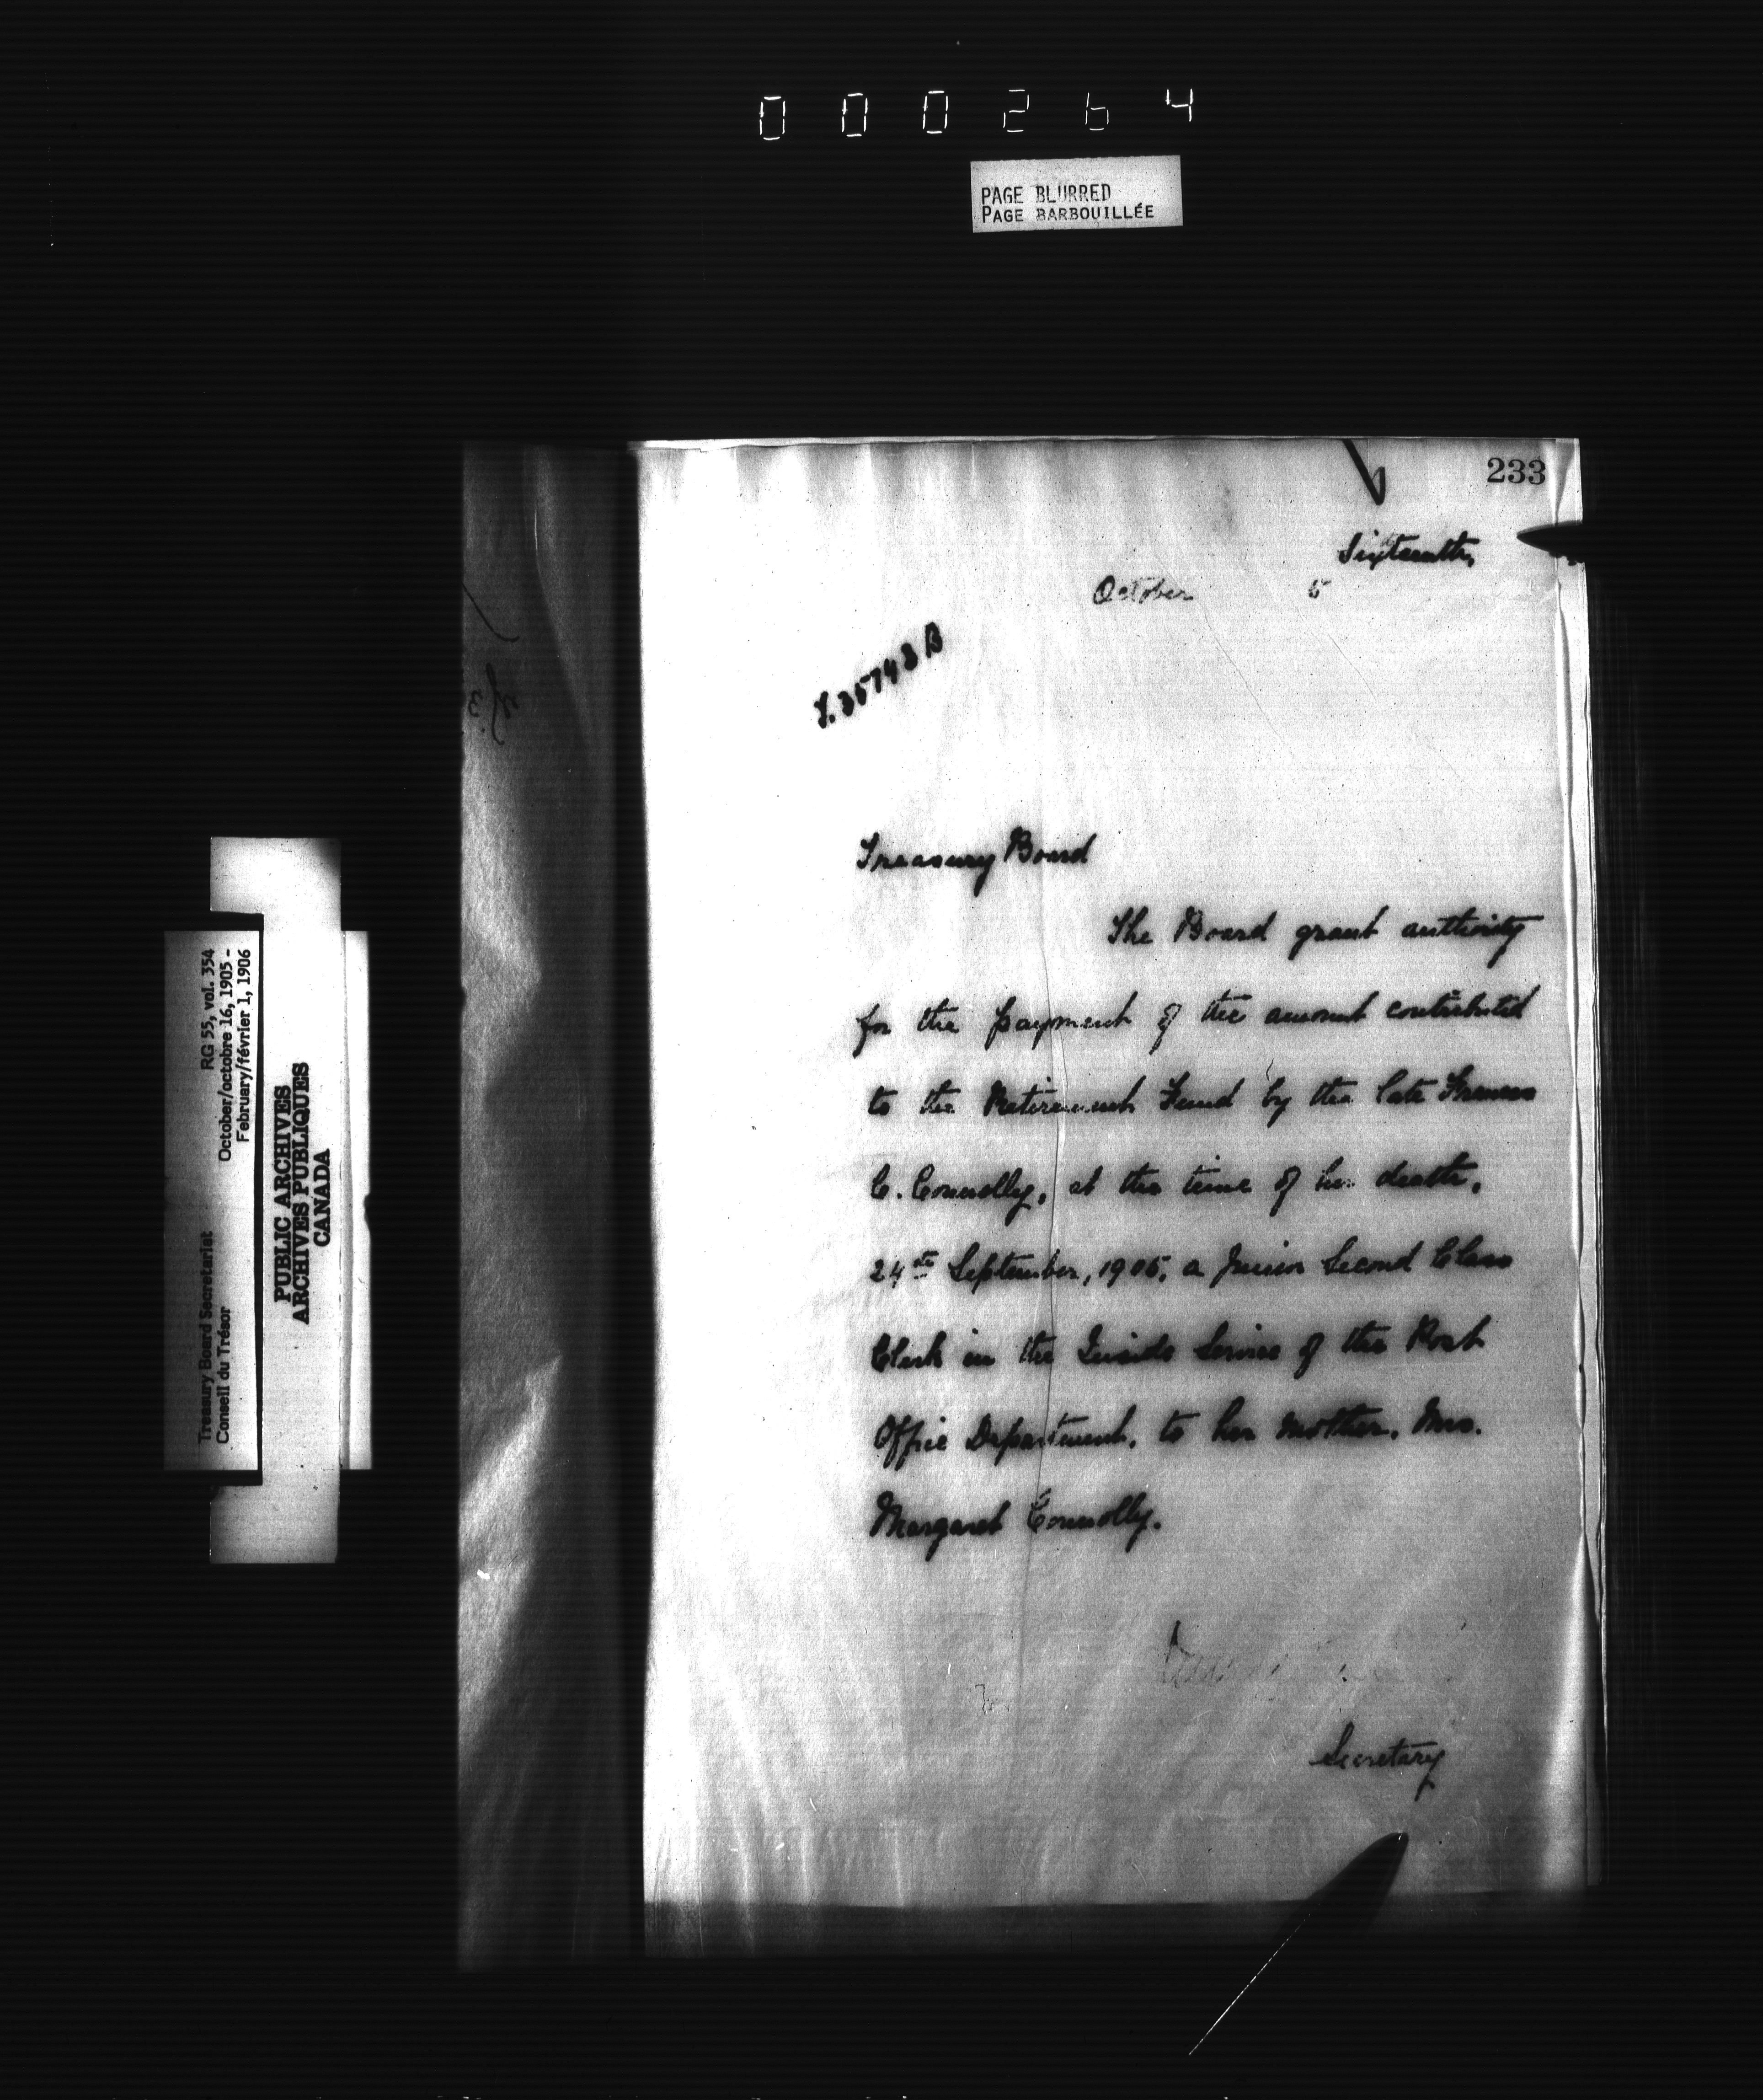 000264
PAGE BLURRED
PAGE BARBOUILLÉE
233
Sixteenth,
October 5
35743 B
Treasury Board
The Board grant authority
for the payment of the amount contributed
to the Retirement Fund by the late Frances
C. Connolly, at the time of her death,
24th September, 1905, a Junior Second Class
Clerk in the Inside Service of the Post
Office Department, to her mother, Mrs.
Margaret Connolly.
Secretary
Treasury Board Secretariat RG 55, vol. 354
Conseil du Trésor October/octobre 16, 1905 -
February/février 1, 1906
PUBLIC ARCHIVES
ARCHIVES PUBLIQUES
CANADA